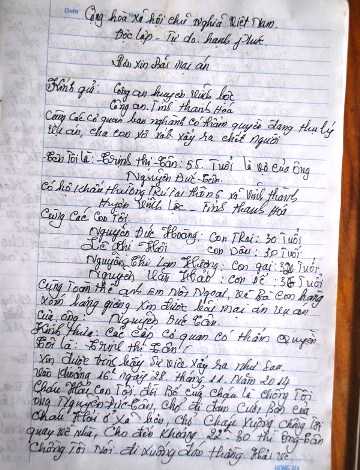 Cộng hoà xã hội chủ nghĩa Việt Nam
Độc lập - Tự do. hạnh phúc
Đơn Xin Bãi Mai án
Kính gửi: Công an huyện Vĩnh lộc
Công an. Tỉnh Thanh Hóa
Cùng Các cơ quan ban nghành có thẩm quyền đang thụ lý
vụ án, cha con xô xát xảy ra chết người
Tên Tôi là: Trịnh thị Tân: 55 Tuổi là vợ của ông
Nguyễn Đức Tân
Có hộ khẩu thường trú tại thôn 6 xã Vĩnh thành
Huyện Vĩnh Lộc - Tỉnh thanh Hoá
Cùng Các Con Tôi
Nguyễn Đức Hoàng: Con Trai: 30 Tuổi
Lê thị Hải Con dâu: 30 Tuổi
Nguyễn Thị Lan Hương: Con gái: Tuổi
Nguyễn Văn: Con Rể: Tuổi
Cùng Toàn thể anh Em Nội Ngoại, Bà Con hàng
xóm láng giềng xin được bãi mai án Vụ án
của ông: Nguyễn Đức Tân
Kính thưa: Các Cấp Có quan có thẩm quyền
Tôi là: Trịnh thị Tân!
xin được trình bày Sự việc xảy ra như Sau
Vào khoảng 16h ngày 28 tháng 11 Năm 2014
Cháu Hải Con Tôi, đòi Bố của Cháu là chồng Tôi
Ông Nguyễn Đức Tân, Chở đi đám Cưới Bạn của
Cháu Hải ở xã bên, Chở Cháu xuống chồng Tôi
quay về nhà, Cho đến khoảng 22h 30 thì ông Tân
Chồng Tôi Nói đi xuống đón thằng Hải về